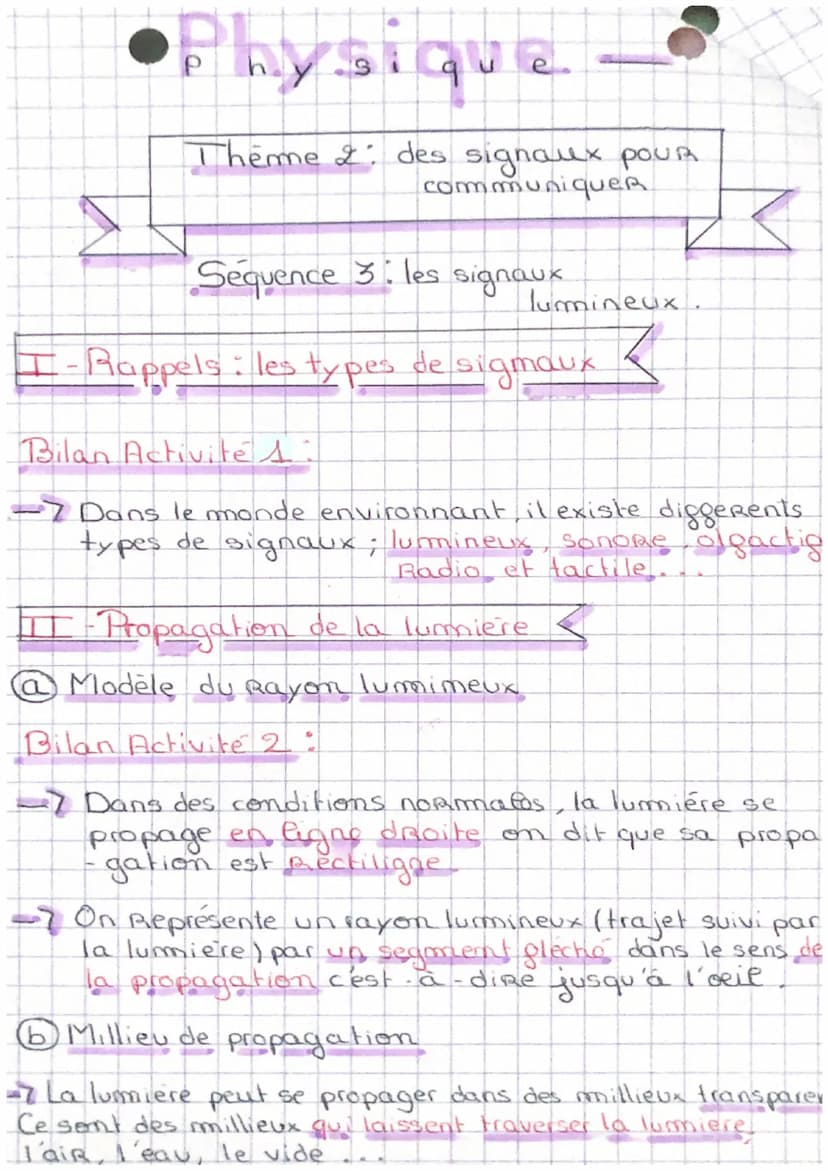 Physique
Thème 2 : des signaux pour
communiquer
Séquence 3 : les signaux
lumineux.
I - Rappels : les types de sigmaux
Bilan Activité 1 :
→ Dans le monde environnant, il existe differents
types de signaux ; lumineux, sonore, olfactif
Radio et tactile...
II - Propagation de la lumière
(a) Modèle du Rayon lumimeux
Bilan Activité 2 :
→ Dans des conditions normales, la lumiére se
propage en ligne droite on dit que sa propa
- gation est Rectiligne
→ On Représente un rayon lumineux (trajet suivi par
la lumière) par un segment fléché dans le sens de
la propagation c'est-à-dire jusqu'à l'oeil.
(b) Millieu de propagation
→ La lumière peut se propager dans des millieux transparen
Ce sont des millieux qui laissent traverser la lumiere.
l'air, l'eau, le vide ...